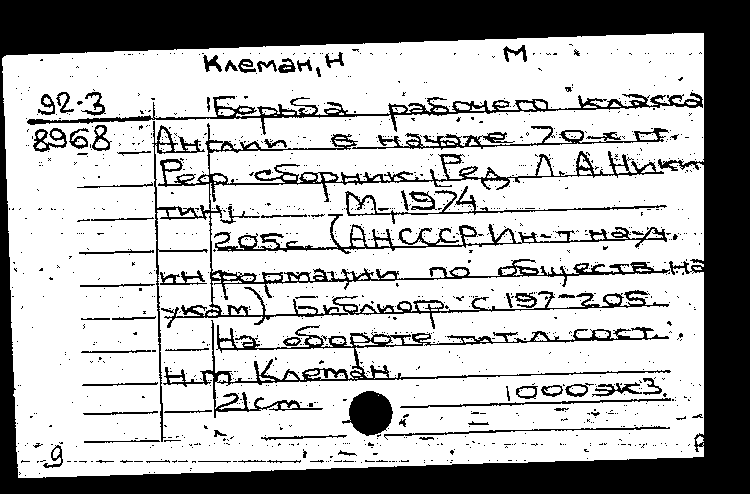 Клеман, Н М
92-3
8968
Борьба рабочего класса
Англии в начале 70-х гг.
Реф. сборник. Ред. Л.А. Ники-
тину. М., 1974.
205с. (АНСССР Ин-т науч.
информации по обществ. на
укам). Библиогр. с. 197-205.
На обороте тит. л. сост.:
Н.т. Клеман.
21 ст. 1000экз.
9